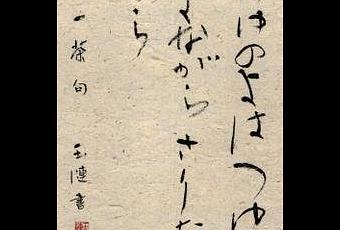 ゆのよはつゆ
よながらさりな
ら
一茶句 玉漣書